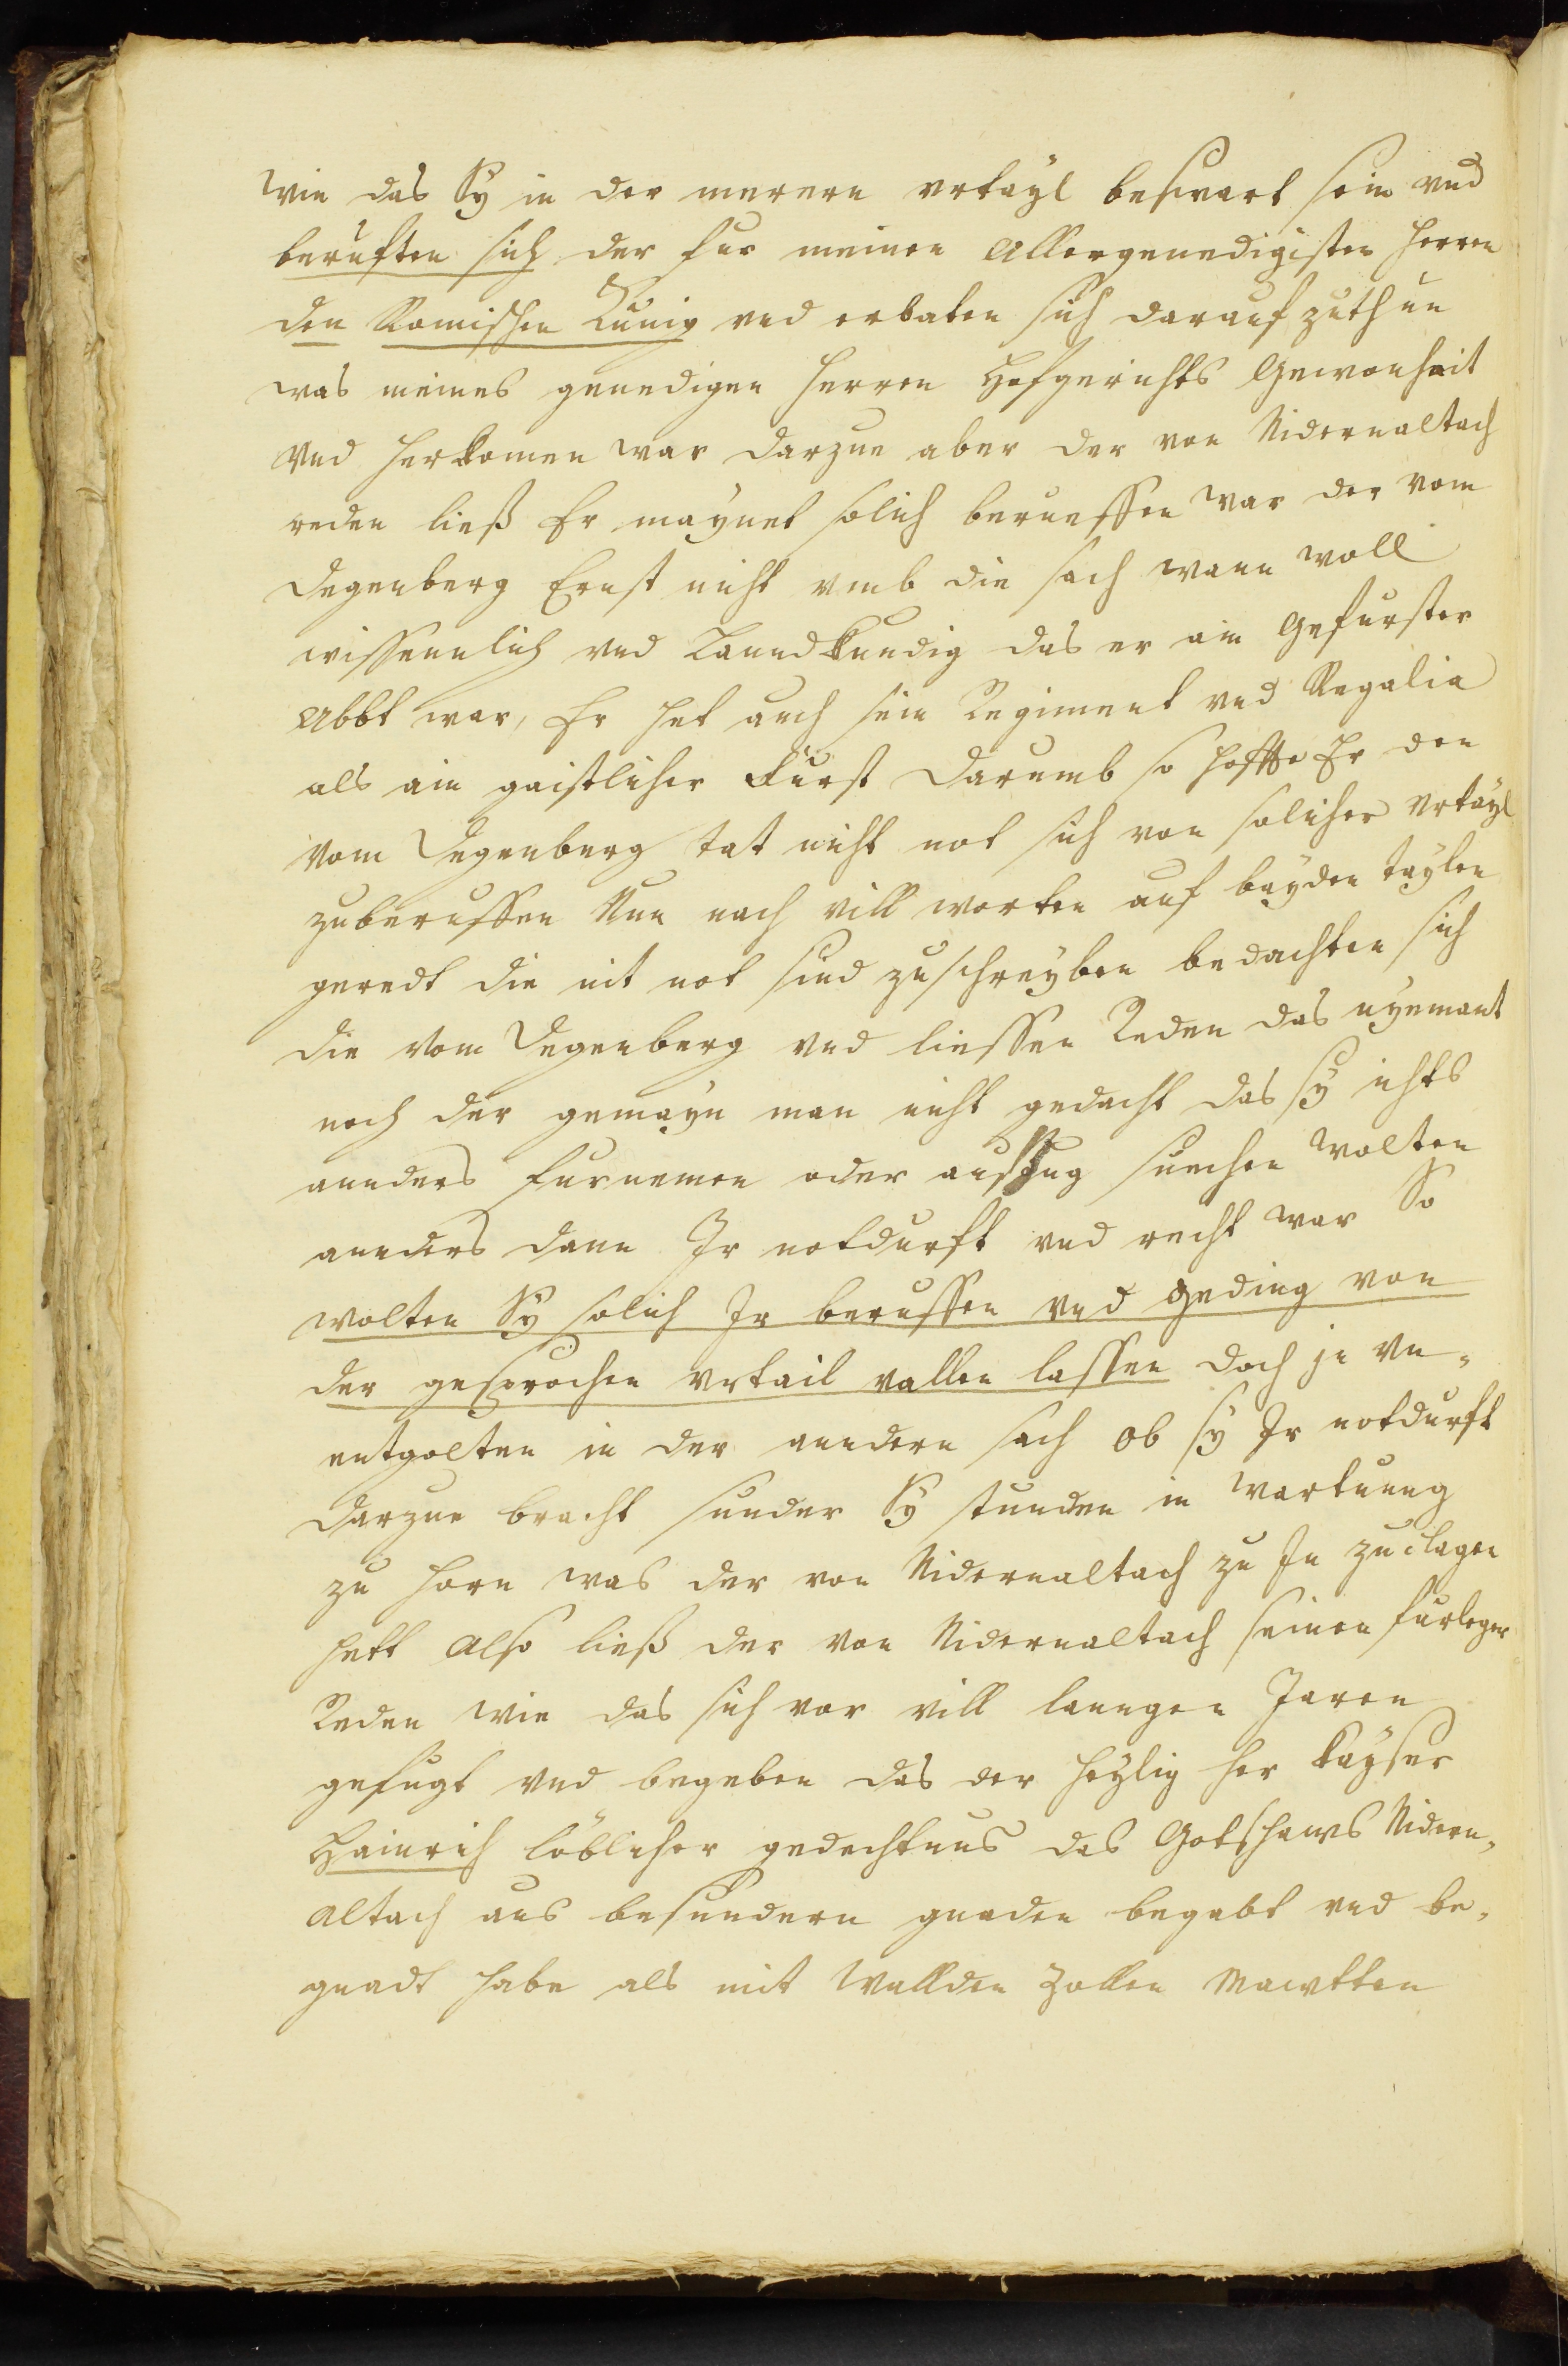 wie das Sy in der merern vrtayl beswart sein vnd
beruften sich der fur meinen Allergenedigisten herren
den Romischen Kunig vnd erbaten sich darauf zuthun
was meines genedigen herren Hofgerichts Gewonhait
vnd herkomen war darzue aber der von Nidernaltach
reden ließ Er maynet solich berueffen war der vom
Degenberg Ernst nicht vmb die sach wann woll
wissennlich vnd Lanndkundig das er ain Gefurster
Abbt war, Er het auch sein Regiment vnd Regalia
als ain gaistlicher Fürst darumb so hoffte Er den
vom Degenberg tat nicht not sich von solicher vrtayl
zuberuffen Nun nach vill worten auf bayden taylen
geredt die nit not sind zuschreyben bedachten sich
die vom Degenberg vnd liessen Reden das nyemant
noch der gemayn man nicht gedacht das sy ichts
annders furnemen oder auszug suechen wolten
annders dann Ir notdurft vnd recht war So
wolten Sy solich Ir beruffen vnd geding von
der gesprochen vrtail vallen lassen doch in vn-
entgolten in der anndern sach ob sy Ir notdurft
darzue bracht sunder Sy stunden in wartung
zu horn was der von Nidernaltach zu In zuclagen
hett Also ließ der von Nidernaltach seinen furleger
Reden wie das sich vor vill lanngen Jaren
gefugt vnd begeben das der heylig her Kayser
Hainrich löblicher gedechtnus das Gotshaws Nidern-
altach aus besundern gnaden begabt vnd be-
gnadt habe als mit Wallden Zollen Mawtten